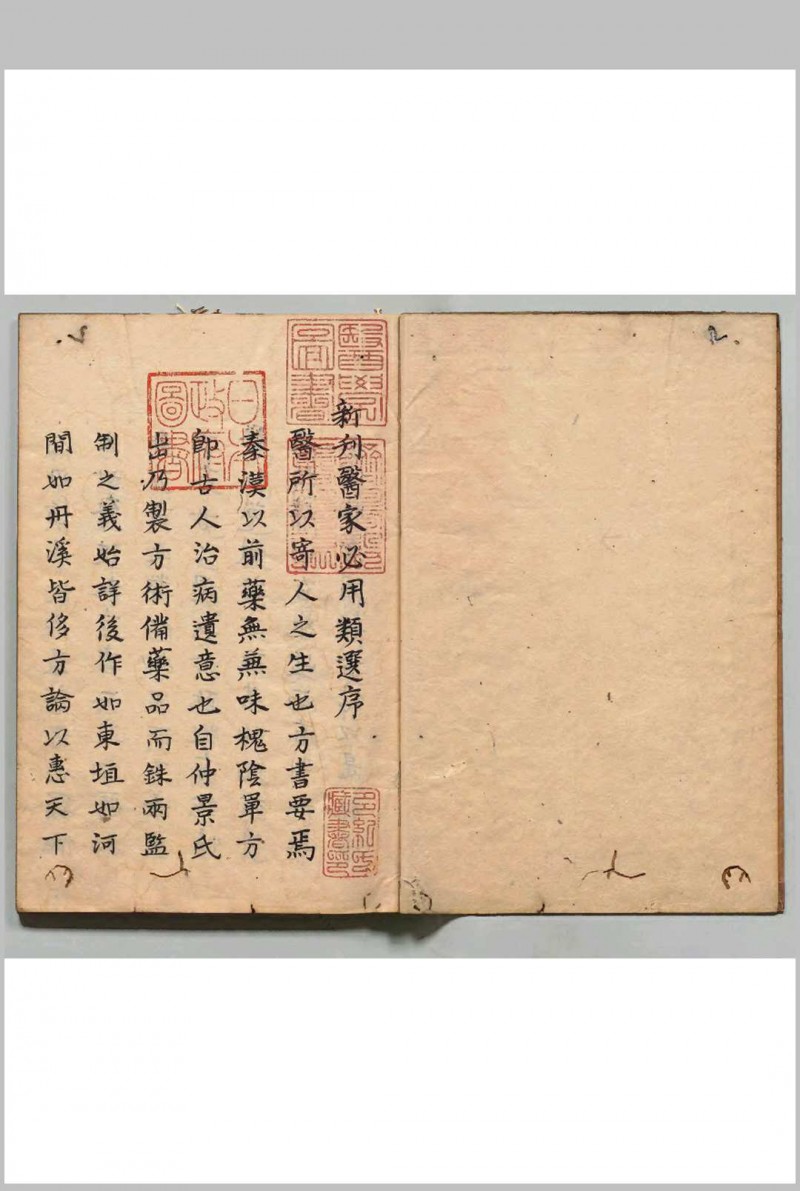 新刋醫家必用類選序
醫所以寄人之生也方書要焉
秦漠以前藥無兼味槐陰單方
即古人治病遺意也自仲景氏
出乃製方術備藥品而銖兩監
制之義始詳後作如東垣如河
間如丹溪皆侈方論以惠天下
醫學圖書
日本政府圖書